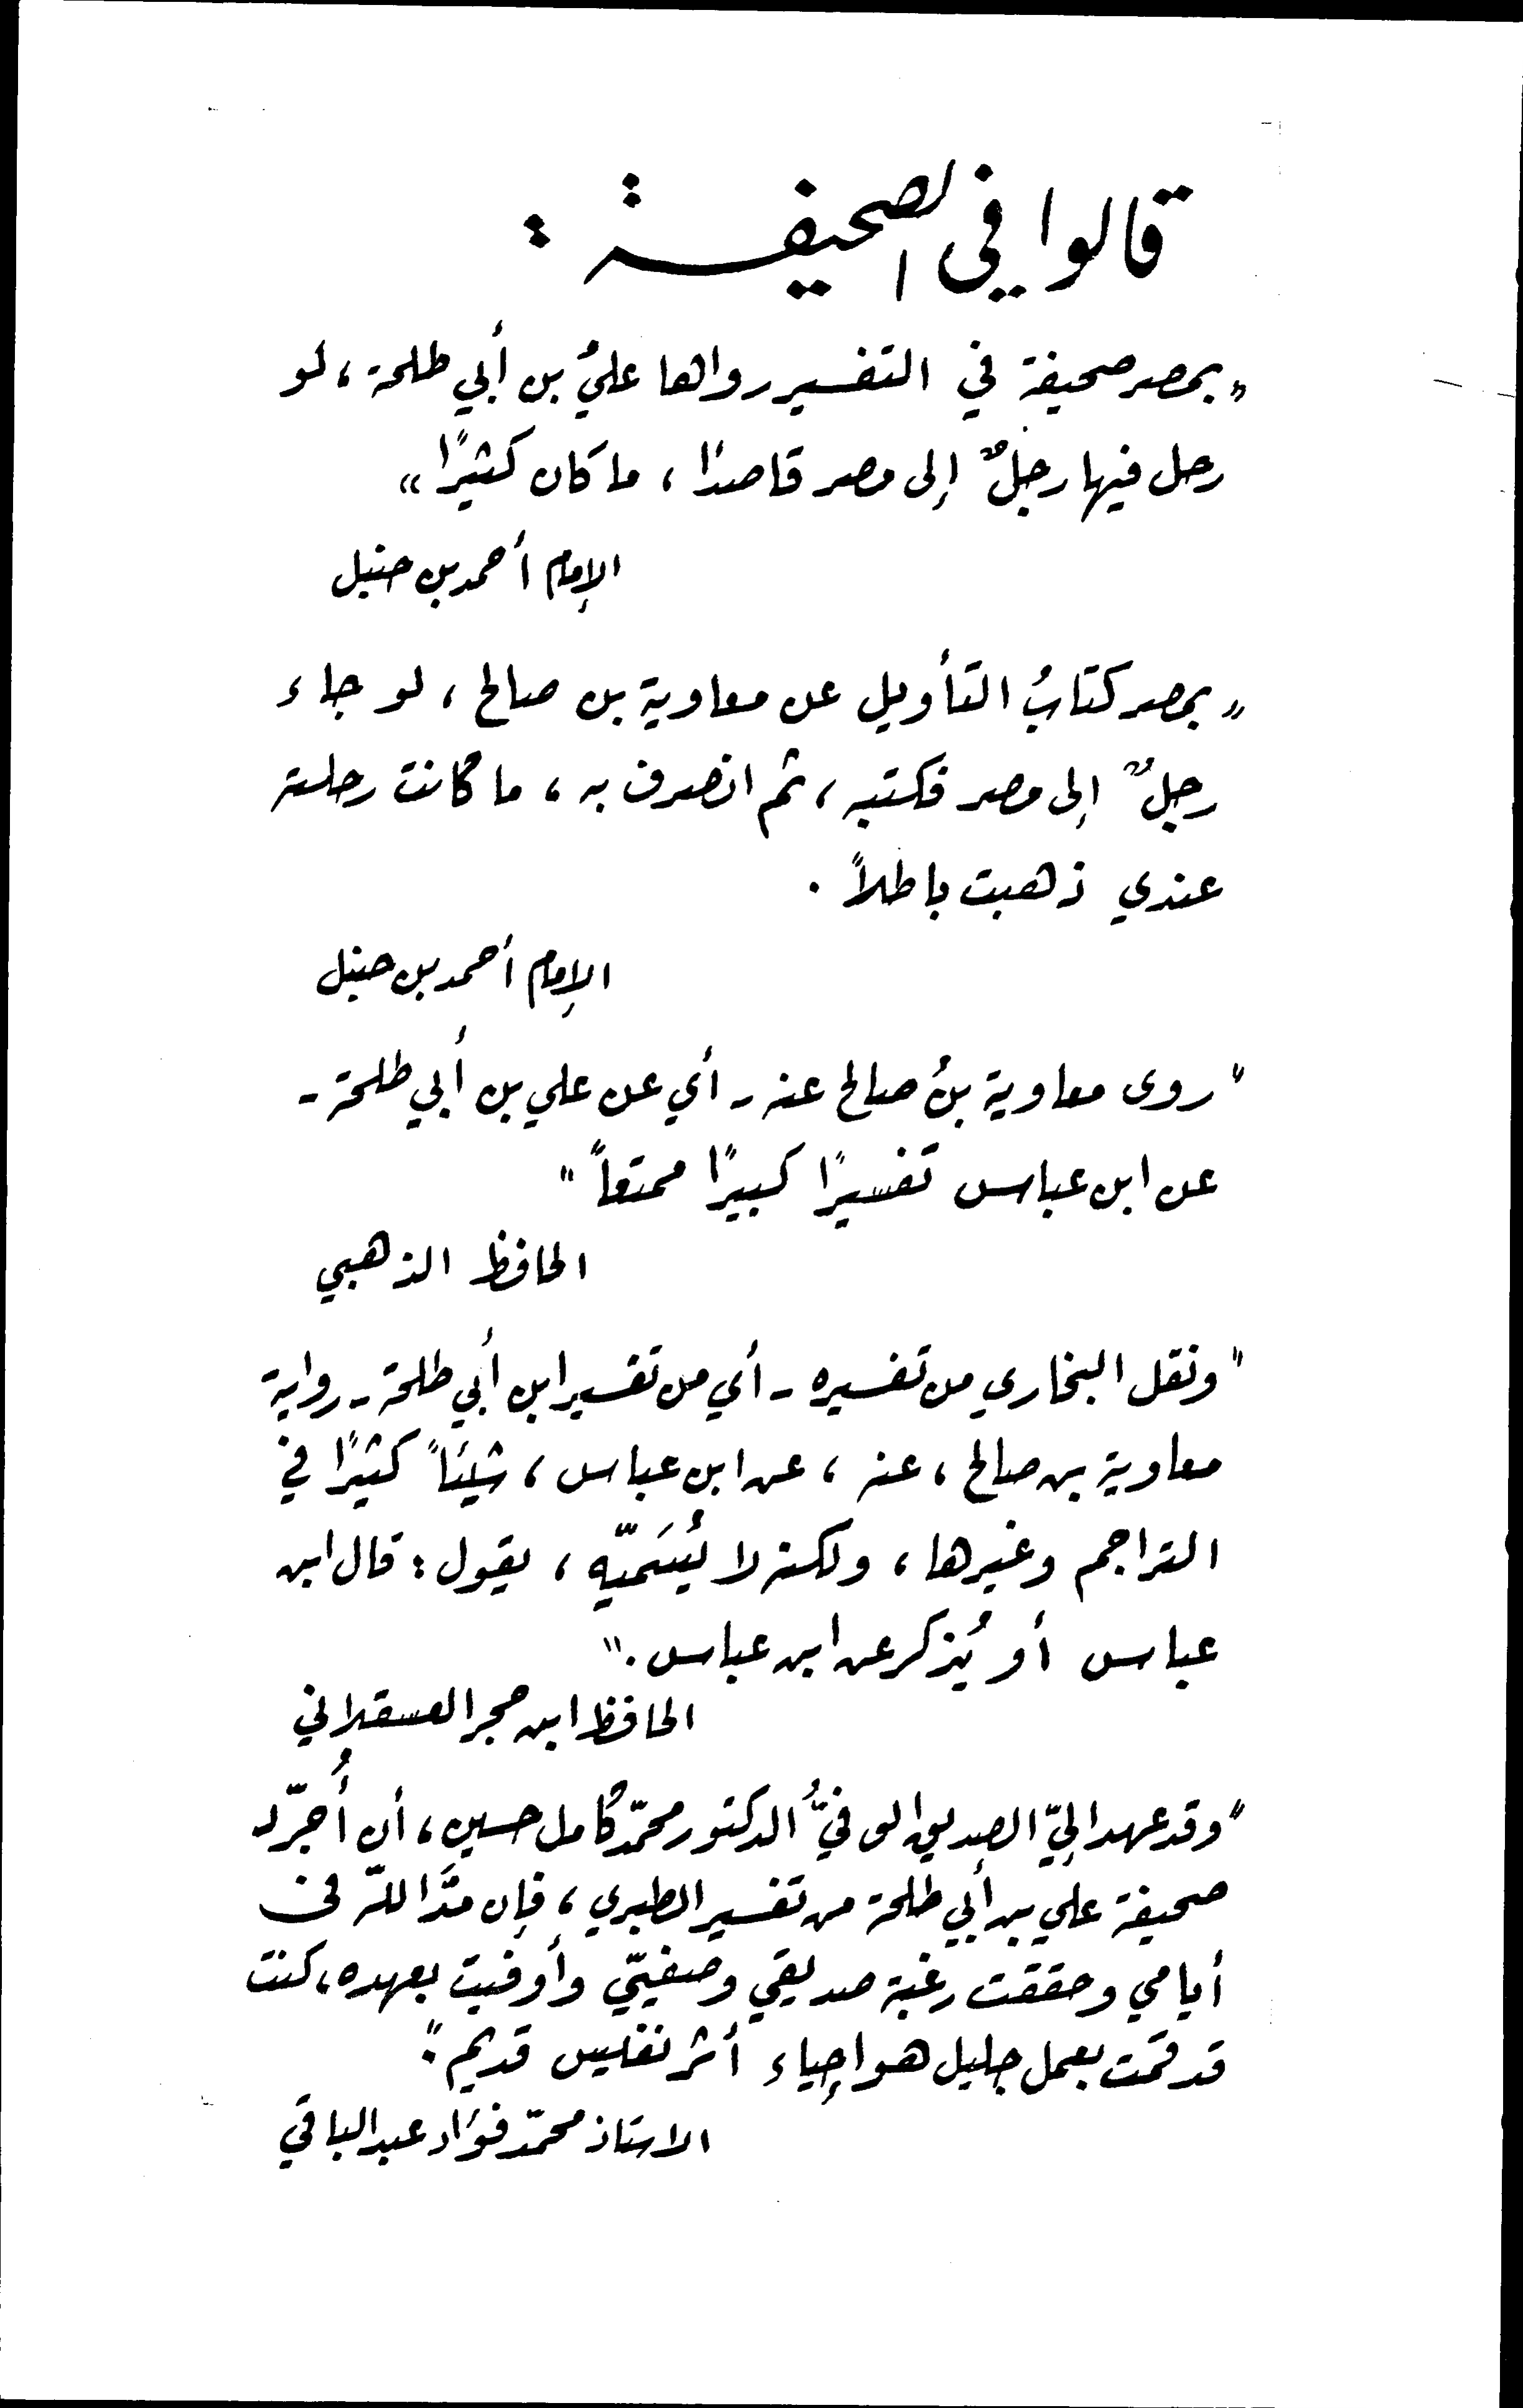 قالوا في الصحيفة :
"بمصر صحيفة في التفسير رواها عليُّ بن أبي طلحة، لو
رحل فيها رجلٌ إلى مصر قاصدًا، ما كان كثيرًا"
الإمام أحمد بن حنبل
"بمصر كتابُ التأويل عن معاوية بن صالح، لو جاء
رجلٌ إلى مصر فكتبه، ثم انصرف به، ما كانت رحلته
عندي ذهبت باطلاً .
الإمام أحمد بن حنبل
"روى معاوية بنُ صالح عنه - أي عن علي بن أبي طلحة -
عن ابن عباس تفسيرًا كبيرًا ممتعاً"
الحافظ الذهبي
"ونقل البخاري من تفسيره - أي من تفسير ابن أبي طلحة - رواية
معاوية بن صالح، عنه، عن ابن عباس، شيئاً كثيرًا في
التراجم وغيرها، ولكنه لا يُسَمّيه، يقول: قال ابن
عباس أو يُذكر عن ابن عباس."
الحافظ ابن حجر العسقلاني
"وقد عهد إليّ الصديق الوفيُّ الدكتور محمّد كامل حسين، أن أُجرّد
صحيفة علي بن أبي طلحة من تفسير الطبري، فإن مدَّ اللّه في
أيامي وحققت رغبة صديقي وصفيّي وأوفيت بعهده، كنت
قد قمت بعمل جليل هو إحياء أثر نفيس قديم."
الاستاذ محمّد فؤاد عبد الباقي